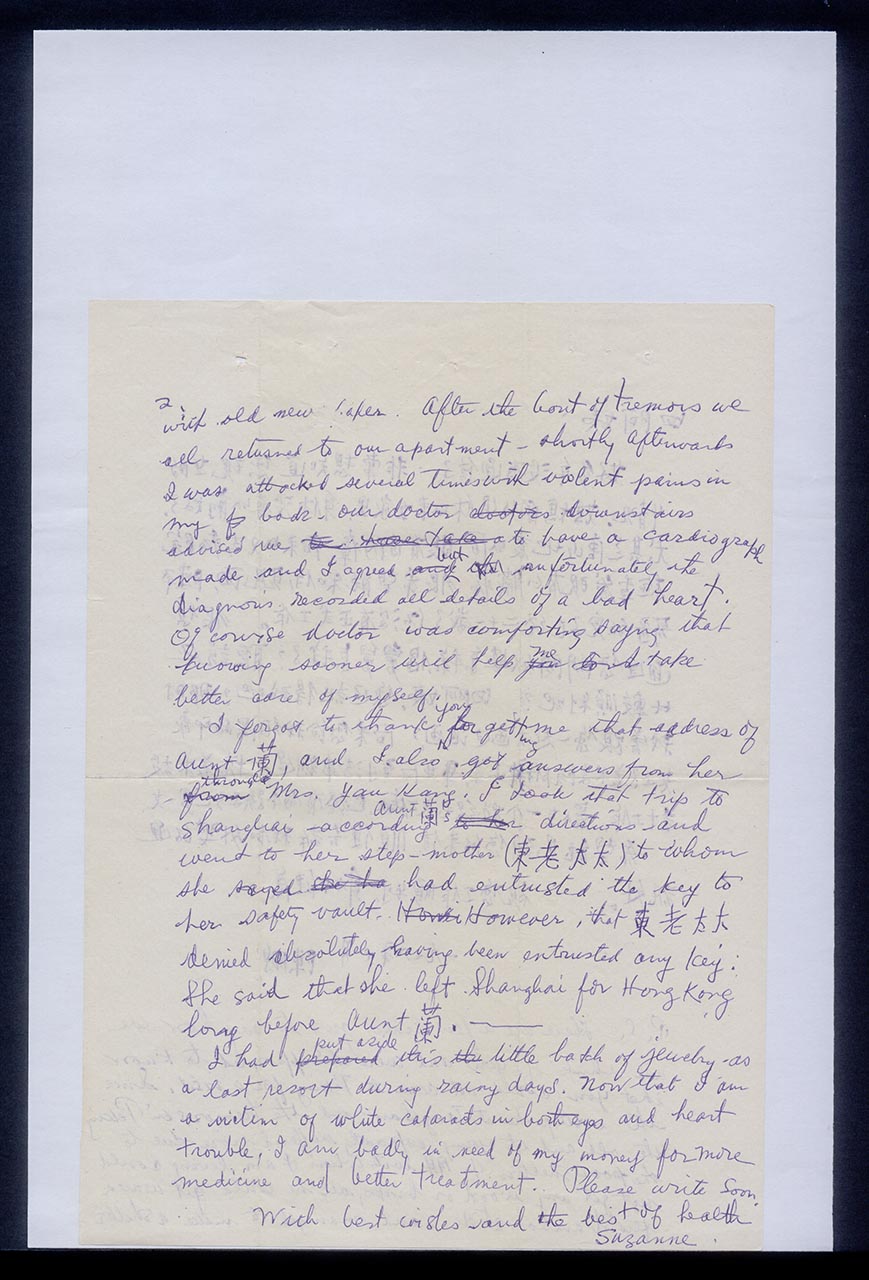 2.
with old new . After the bout of tremors we
all returned to our apartment – shortly afterwards
I was attacked several times with violent pains in
my back – our doctor doctors downstairs
advised me to have take a to have a cardiograph
made and I agreed and but unfortunately the
diagnosis recorded all details of a bad heart.
Of course doctor was comforting saying that
knowing sooner will help you me take
better care of myself.
I forgot to thank you for getting me that address of
Aunt 蘭, and I also got answers from her
from through Mrs. Yau Kang. I took that trip to
Shanghai according to her Aunt 蘭's directions and
went to her step-mother (東老太太) to whom
she sayed she ha had entrusted the key to
her safety vault. However, that 東老太太
denied absolutely having been entrusted any key.
She said that she left Shanghai for Hong Kong
long before Aunt 蘭. —
I had prepared put aside this the little batch of jewelry as
a last resort during rainy days. Now that I am
a victim of white cataracts in both eyes and heart
trouble, I am badly in need of my money for more
medicine and better treatment. Please write soon.
With best wishes and the best of health
Suzanne.